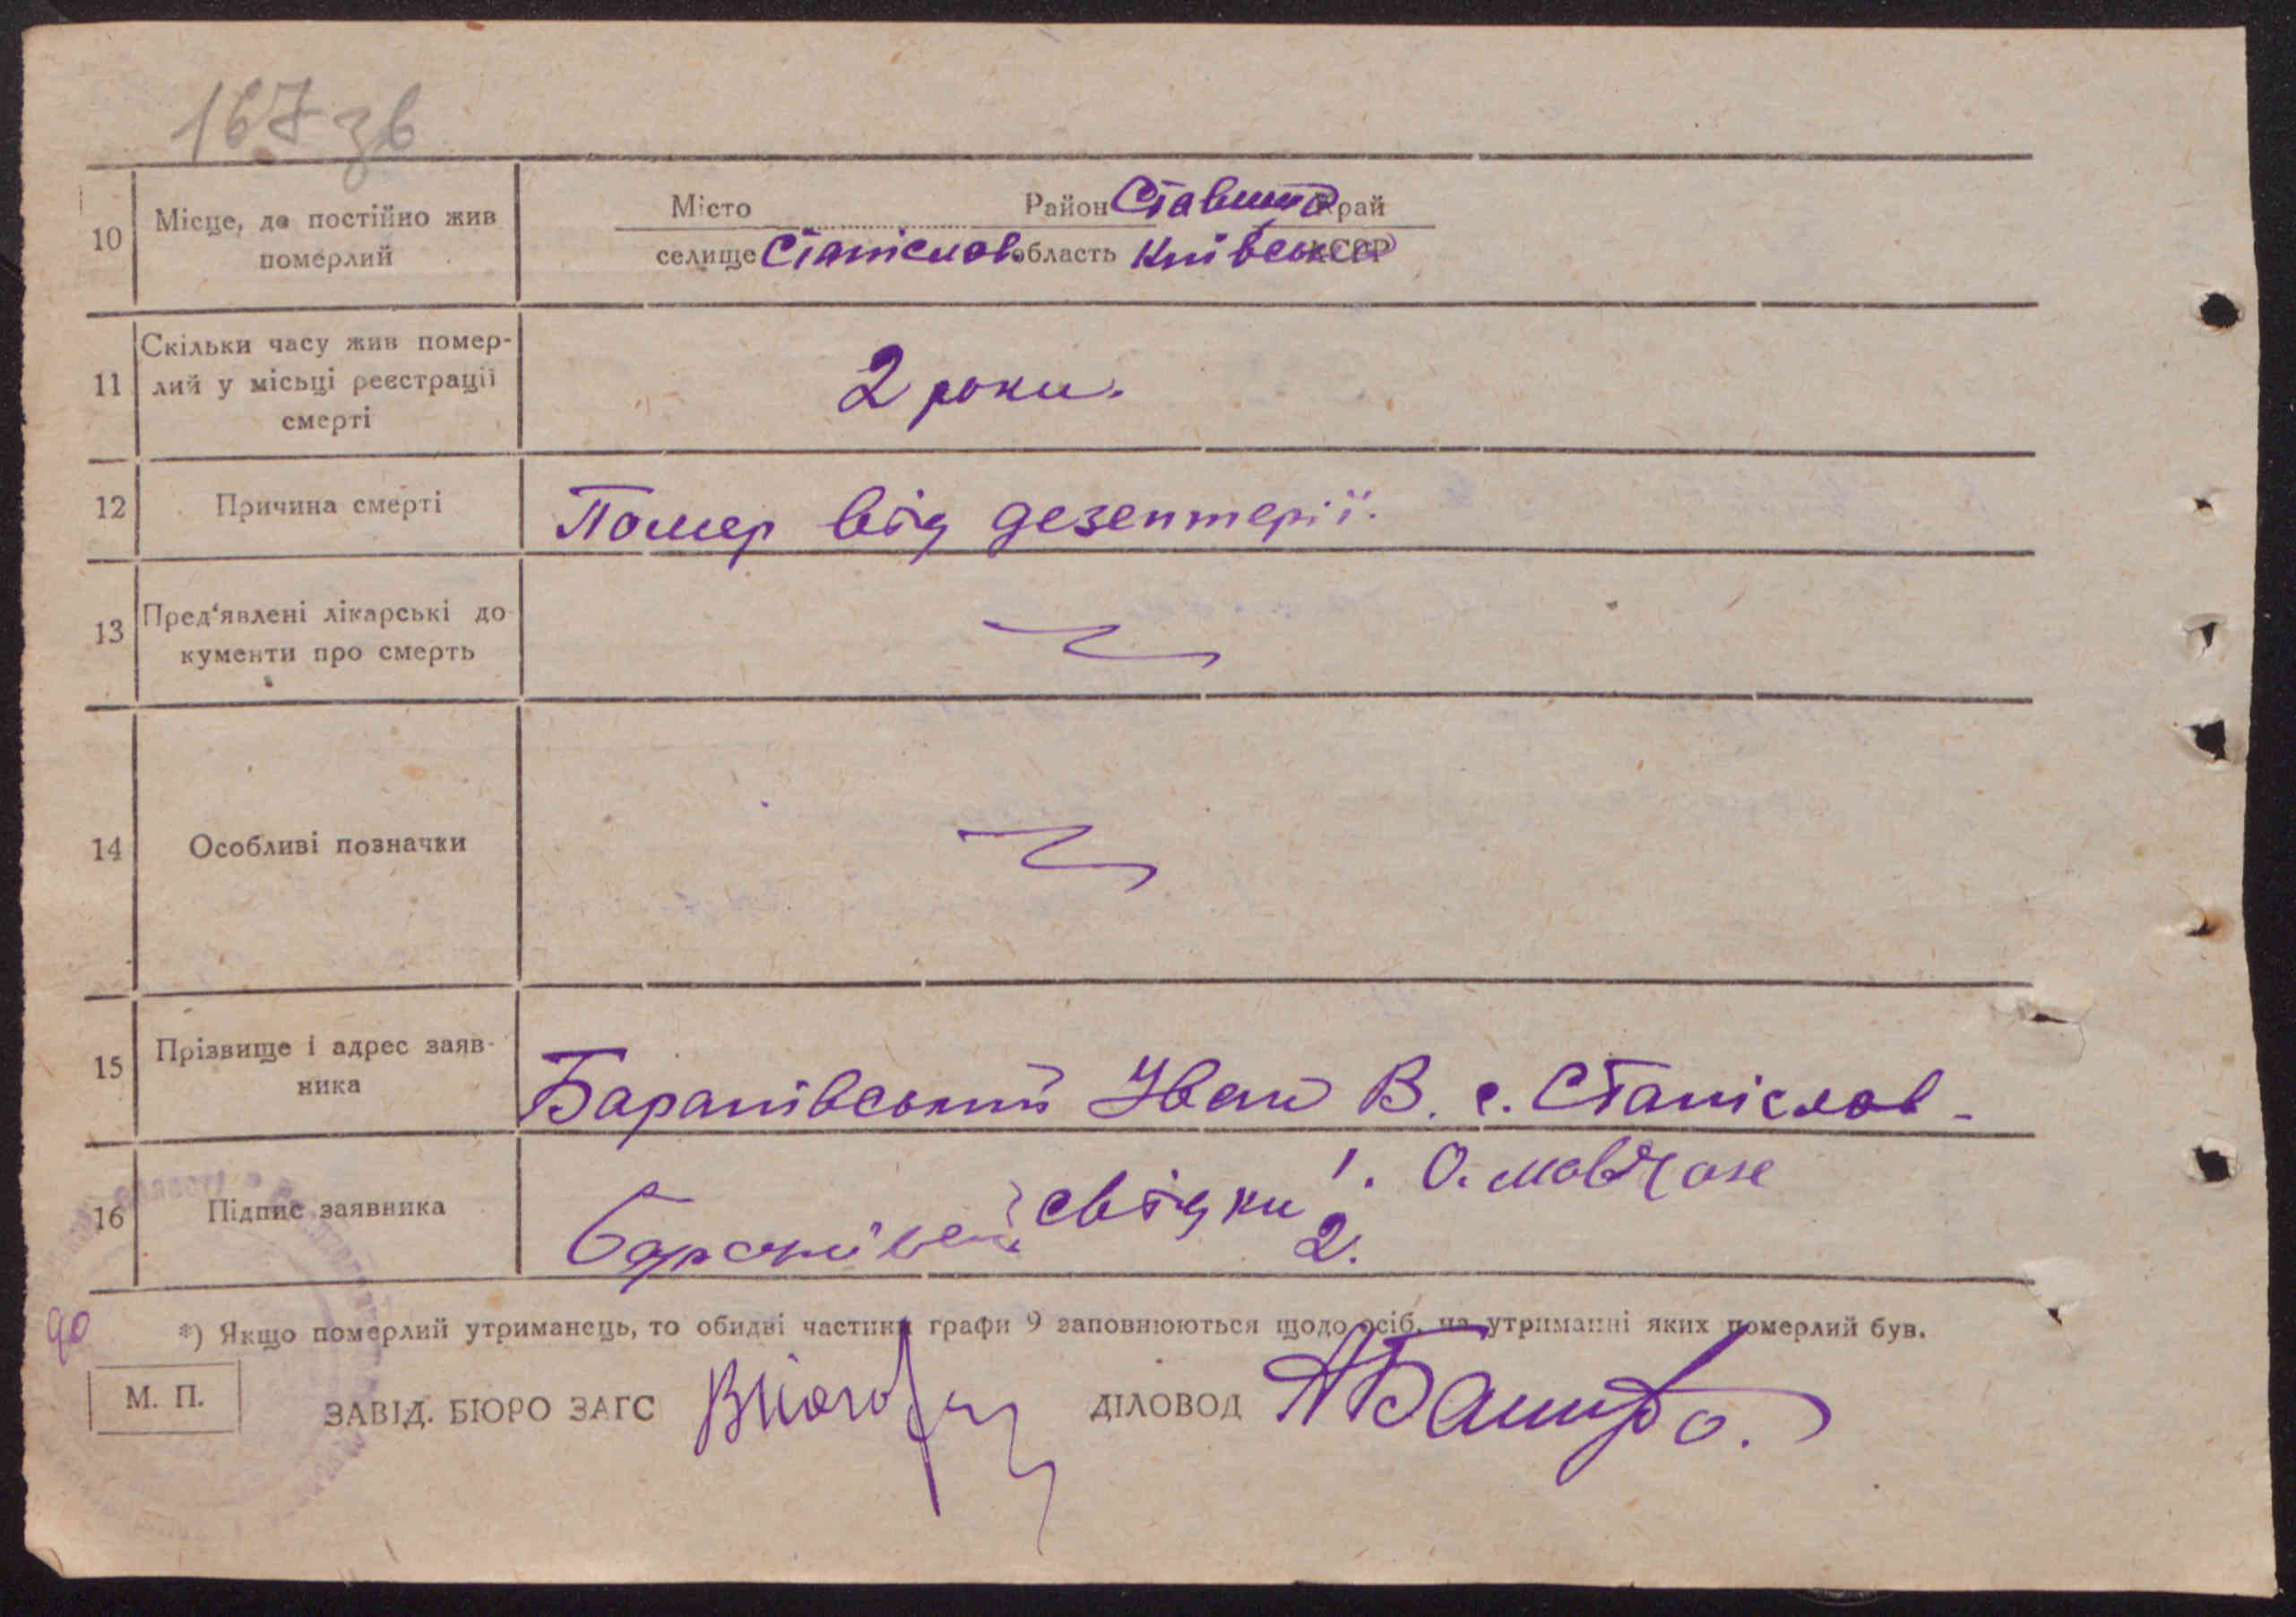 167 зв
10 Місце, де постійно жив померлий
Місто Район Ставище Край
селище Станіслав область Київська АСРР
11 Скільки часу жив помер-
лий у місьці реєстрації
смерті
2 роки.
12 Причина смерті
Помер від дезентерії.
13 Пред'явлені лікарські до-
кументи про смерть
14 Особливі позначки
15 Прізвище і адрес заяв-
ника
Баранівський Иван В. с. Станіслав -
16 Підпис заявника
Баранівсь свідки 1. О.
2.
*) Якщо померлий утриманець, то обидві частини графи 9 заповнюються щодо осіб, на утриманні яких померлий був.
М. П.
ЗАВІД. БЮРО ЗАГС
ДІЛОВОД